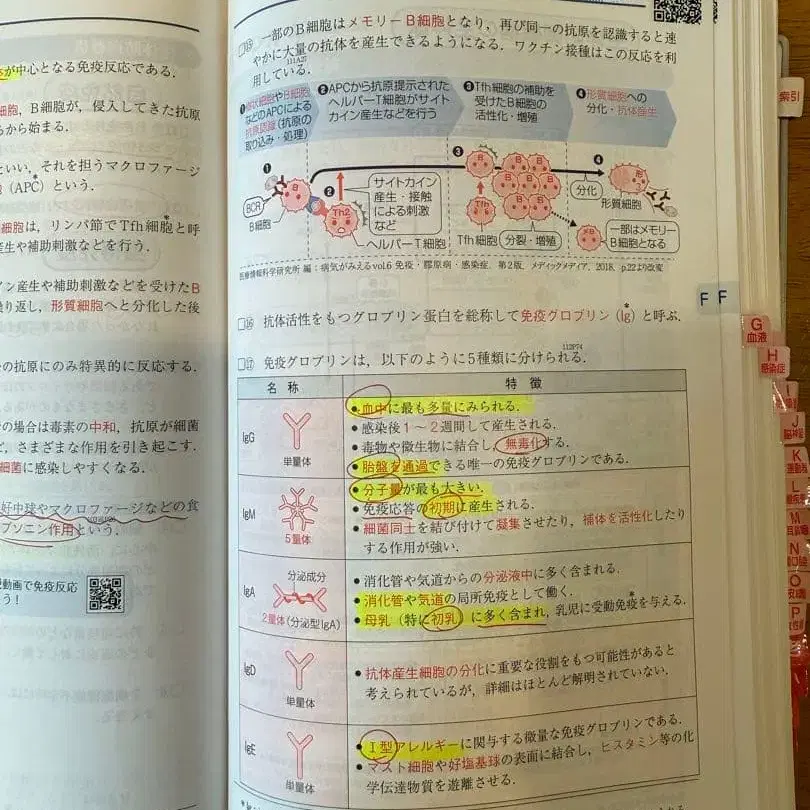 が中心となる免疫反応である.
細胞, B細胞が, 侵入してきた抗原
から始まる.
といい, それを担うマクロファージ
(APC*) という.
細胞は, リンパ節でTfh細胞*と呼
産生や補助刺激などを行う.
イン産生や補助刺激などを受けたB
繰り返し, 形質細胞へと分化した後
の抗原にのみ特異的に反応する.
の場合は毒素の中和, 抗原が細菌
ど, さまざまな作用を引き起こす.
細菌に感染しやすくなる.
好中球やマクロファージなどの食
プソニン作用という.
動画で免疫反応
う!
□⑮ 一部のB細胞はメモリーB細胞となり, 再び同一の抗原を認識すると速
やかに大量の抗体を産生できるようになる. ワクチン接種はこの反応を利
用している. 111A27
❶樹状細胞やB細胞
などのAPCによる
抗原認識(抗原の
取り込み・処理)
❷APCから抗原提示された
ヘルパーT細胞がサイト
カイン産生などを行う
❸Tfh細胞の補助を
受けたB細胞の
活性化・増殖
❹形質細胞への
分化・抗体産生
❶
BCR
B
B細胞
❷
Th2
サイトカイン
産生・接触
による刺激
など
ヘルパーT細胞
❸
B
Tfh
Tfh細胞
B
分裂・増殖
❹
分化
形
形質細胞
B
一部はメモリー
B細胞となる
医療情報科学研究所 編:病気がみえるvol.6 免疫・膠原病・感染症, 第2版, メディックメディア, 2018, p.22より改変
□⑯ 抗体活性をもつグロブリン蛋白を総称して免疫グロブリン(Ig*)と呼ぶ.
□⑰ 免疫グロブリンは, 以下のように5種類に分けられる. 112F74
名 称
特 徴
IgG
単量体
•血中に最も多量にみられる.
•感染後1〜2週間して産生される.
•毒物や微生物に結合し, 無毒化する.
•胎盤を通過できる唯一の免疫グロブリンである.
IgM
5量体
•分子量が最も大きい.
•免疫応答の初期に産生される.
•細菌同士を結び付けて凝集させたり, 補体を活性化したり
する作用が強い.
IgA
分泌成分
2量体(分泌型IgA)
•消化管や気道からの分泌液中に多く含まれる.
•消化管や気道の局所免疫として働く.
•母乳(特に初乳)に多く含まれ, 乳児に受動免疫*を与える.
IgD
単量体
•抗体産生細胞の分化に重要な役割をもつ可能性があると
考えられているが, 詳細はほとんど解明されていない.
IgE
単量体
•Ⅰ型アレルギーに関与する微量な免疫グロブリンである.
•マスト細胞や好塩基球の表面に結合し, ヒスタミン等の化
学伝達物質を遊離させる.
索引
F F
G
血液
H
感染症
I
J
K
L
M
N
O
P